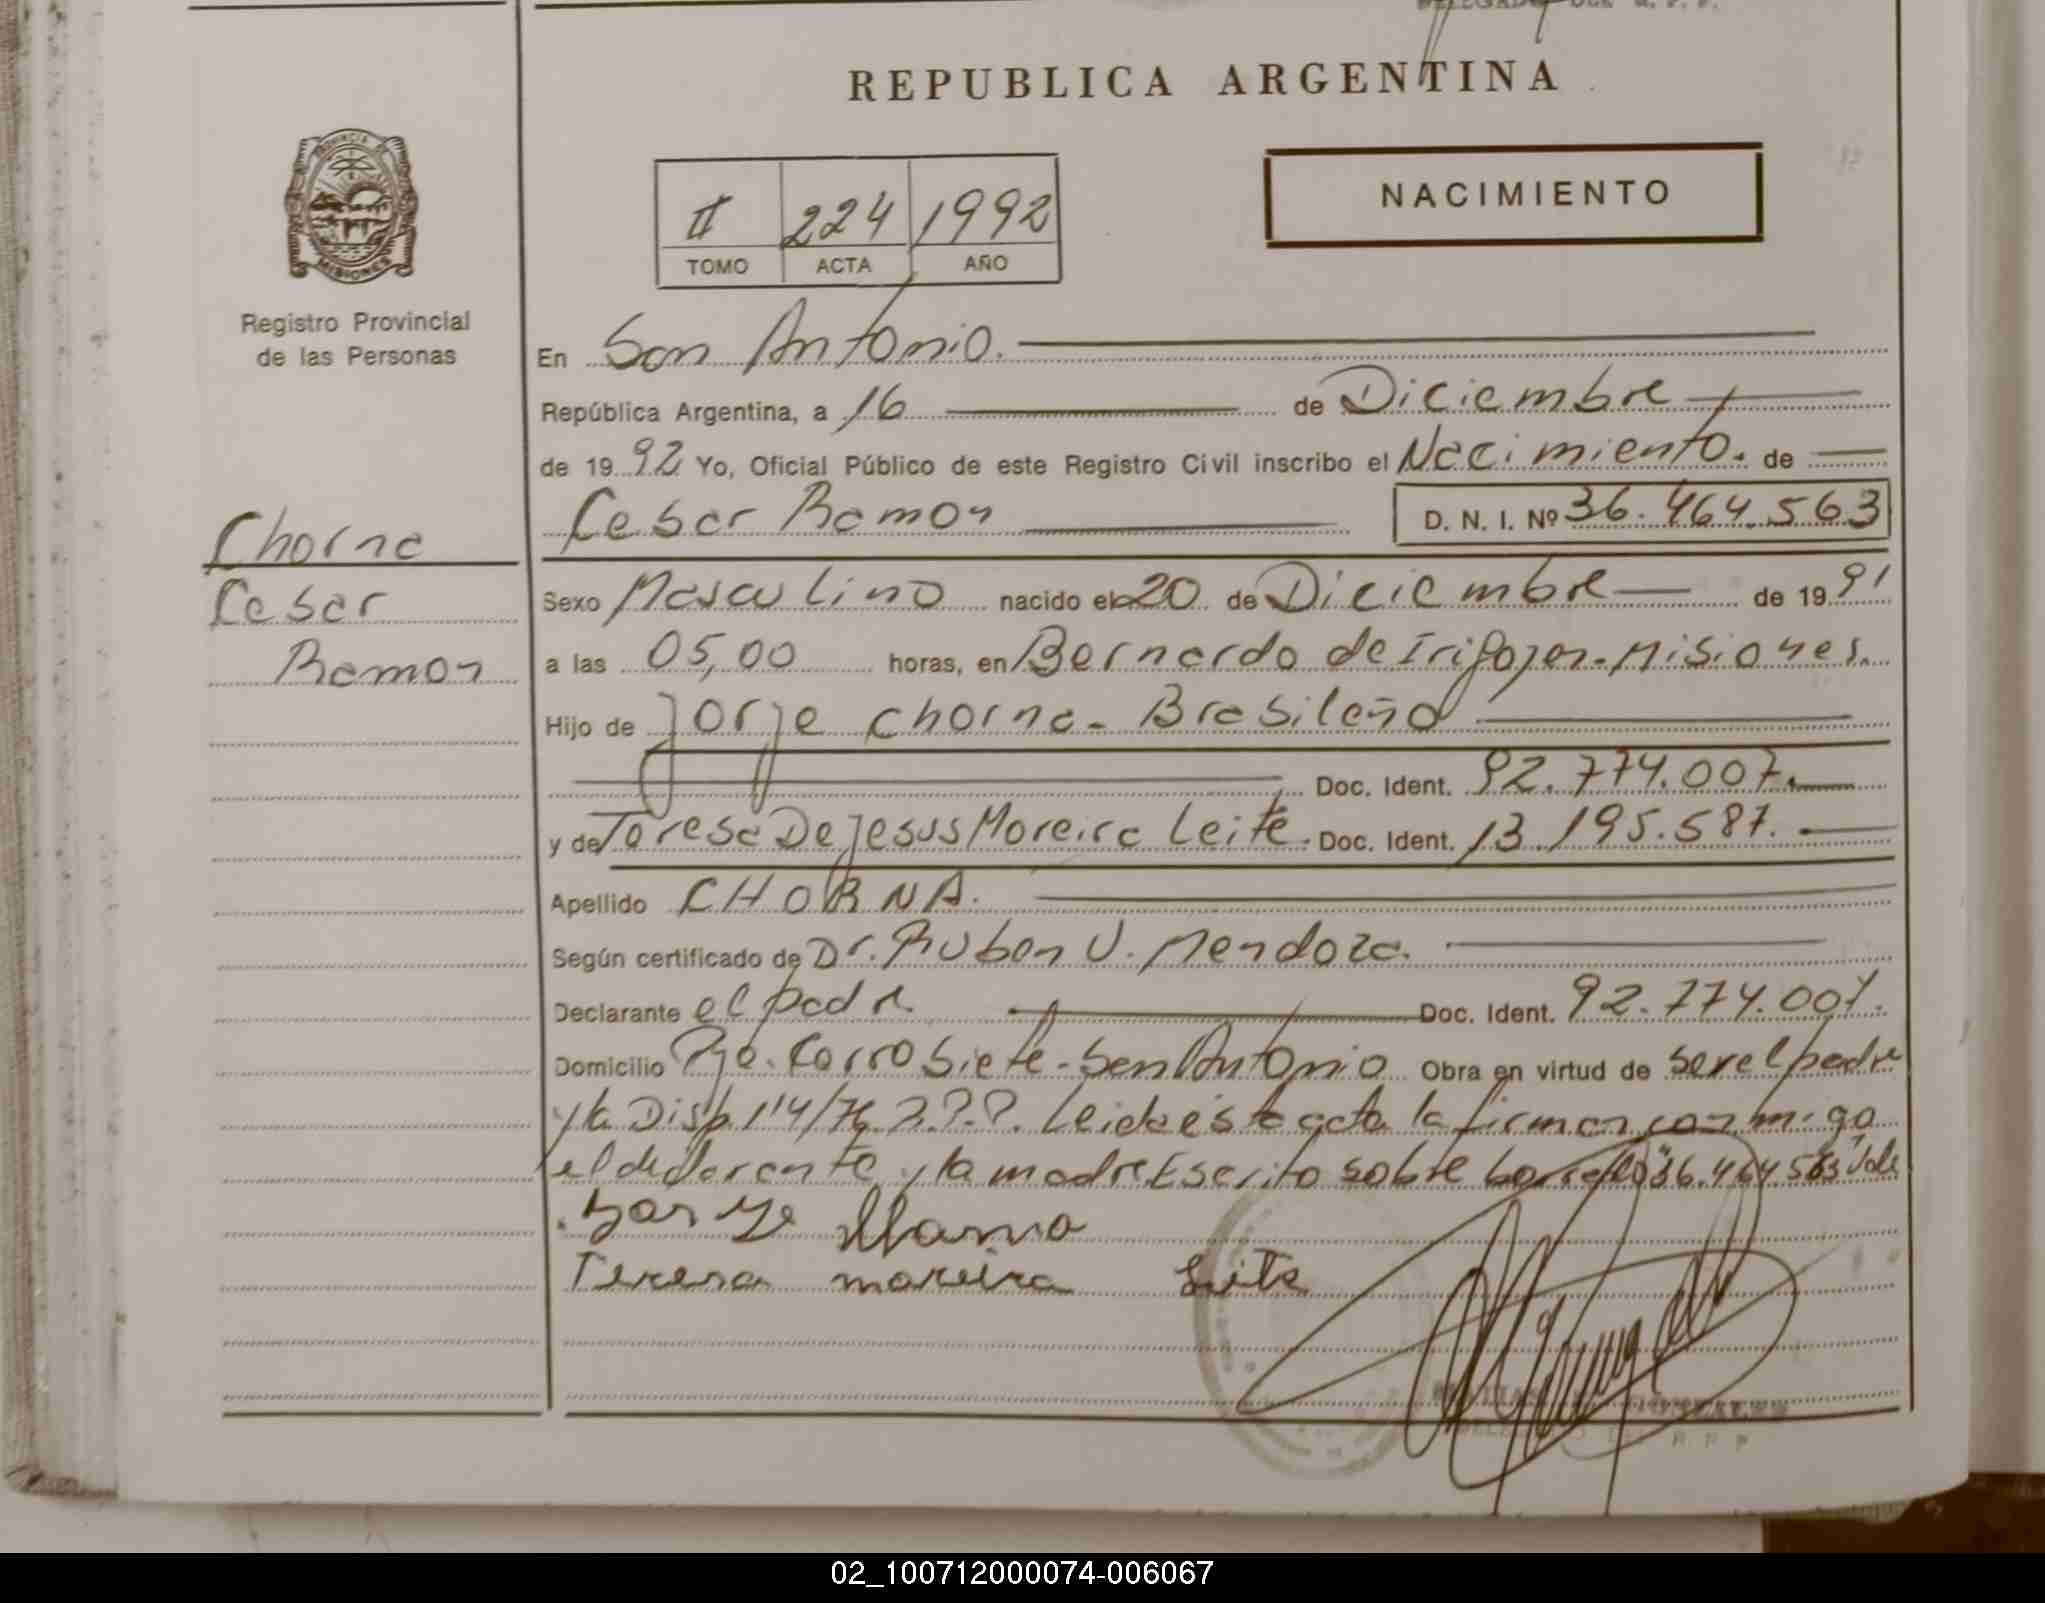 REPUBLICA ARGENTINA
NACIMIENTO
II 224 1992
TOMO ACTA AÑO
PROVINCIA DE
MISIONES
Registro Provincial
de las Personas
Chorna
Cesar
Ramon
En San Antonio.
República Argentina, a 16 de Diciembre
de 1992 Yo, Oficial Público de este Registro Civil inscribo el Nacimiento. de
Cesar Ramon D. N. I. Nº 36.464.563
Sexo Masculino nacido el 20 de Diciembre de 1991
a las 05,00 horas, en Bernardo de Irigoyen-Misiones.
Hijo de Jorje Chorna- Brasileño
Doc. Ident. 92.774.007.
y de Teresa De Jesus Moreira Leite. Doc. Ident. 13.195.587.
Apellido CHORNA.
Según certificado de Dr. Ruben U. Mendoza.
Declarante el padre Doc. Ident. 92.774.007.
Domicilio Pje. Cerro Siete-San Antonio Obra en virtud de ser el padre
y la Disp. 114/76 Leida esta acta la firman conmigo
el declarante y la madre. Escrito sobre borrado "36.464.563" Vale
Teresa moreira Leite
GONZALEZ
02_100712000074-006067